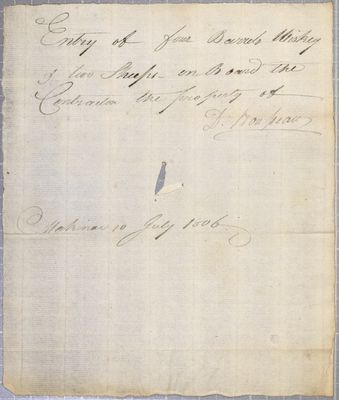 Entry of four Barrels Wiskey
& two Sheeps on Board the
Contractor the property of
D.
Makinac 10 July 1806